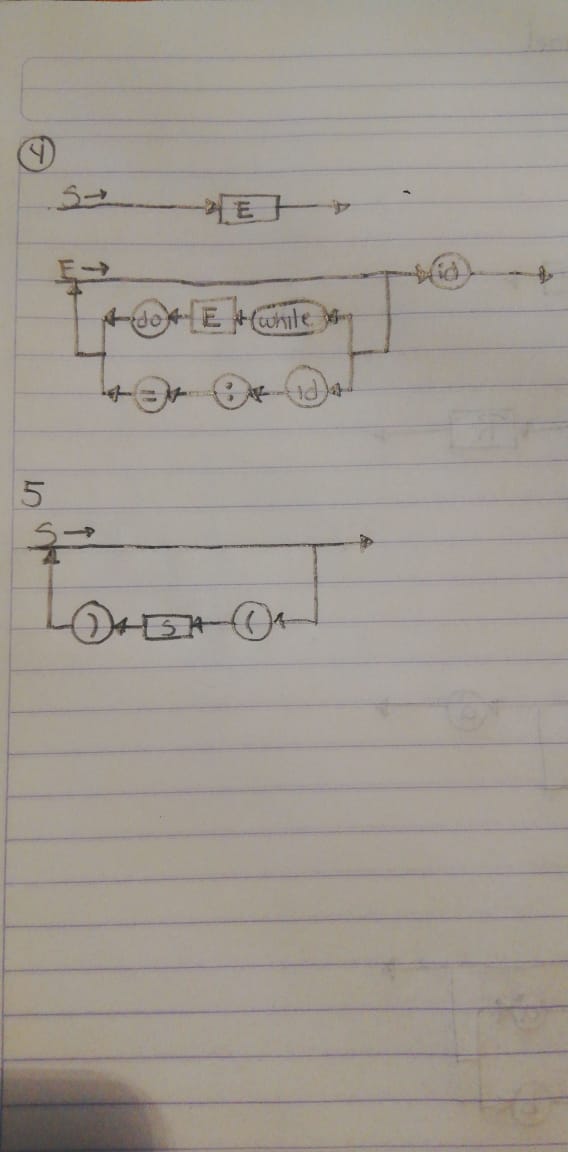 4
S →
E
E → id
do E while
= : id
5
S →
) S (